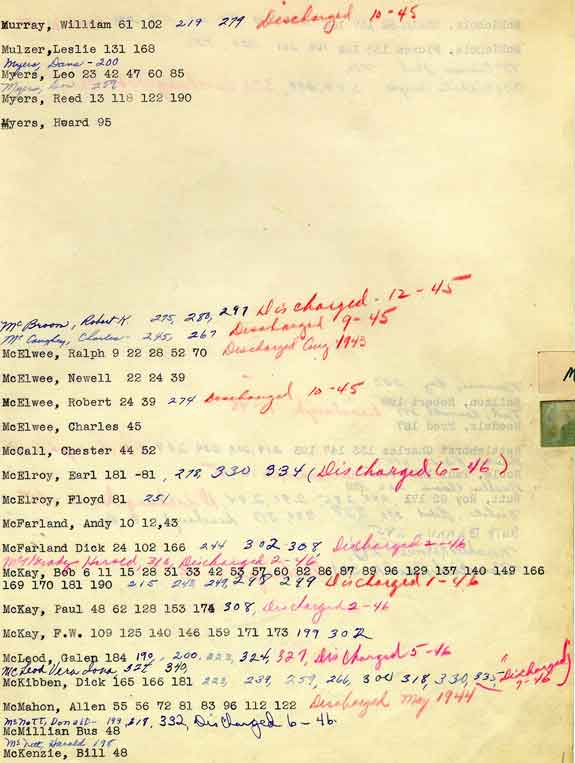 Murray, William 61 102 219 279 Discharged 10-45
Mulzer,Leslie 131 168
Myers, Dana - 200
Myers, Leo 23 42 47 60 85
Myers, 259
Myers, Reed 13 118 122 190
Myers, Hward 95
McBroom, Robert K. 275, 280, 297 Discharged - 12-45
McCaughey, Charles - 245, 267 Discharged 9-45
McElwee, Ralph 9 22 28 52 70 Discharged Aug 1943
McElwee, Newell 22 24 39
McElwee, Robert 24 39 274 Discharged 10-45
McElwee, Charles 45
McCall, Chester 44 52
McElroy, Earl 181 -81, 278, 330 334 (Discharged 6-46)
McElroy, Floyd 81 251
McFarland, Andy 10 12,43
McFarland Dick 24 102 166 244 302 308, Discharged 2-46
Harold, 313, Discharged 2-46
McKay, Bob 6 11 15 28 31 33 42 53 57 60 82 86 87 89 96 129 137 140 149 166
169 170 181 190 215 243 249, 298 299 Discharged 1-46
McKay, Paul 48 62 128 153 174 308, Discharged 2-46
McKay, F.W. 109 125 140 146 159 171 173 199 302
McLeod, Galen 184 190, 200, 223, 324, 327, Discharged 5-46
McLeod Vera Iona 324 340,
McKibben, Dick 165 166 181 223, 239, 259, 266, 300 318, 330, 335 "Discharged 7-46
McMahon, Allen 55 56 72 81 83 96 112 122 Discharged May 1944
McNott, Donald - 199, 218, 332, Discharged 6-46.
McMillian Bus 48
McNett, Harold 198
McKenzie, Bill 48
M